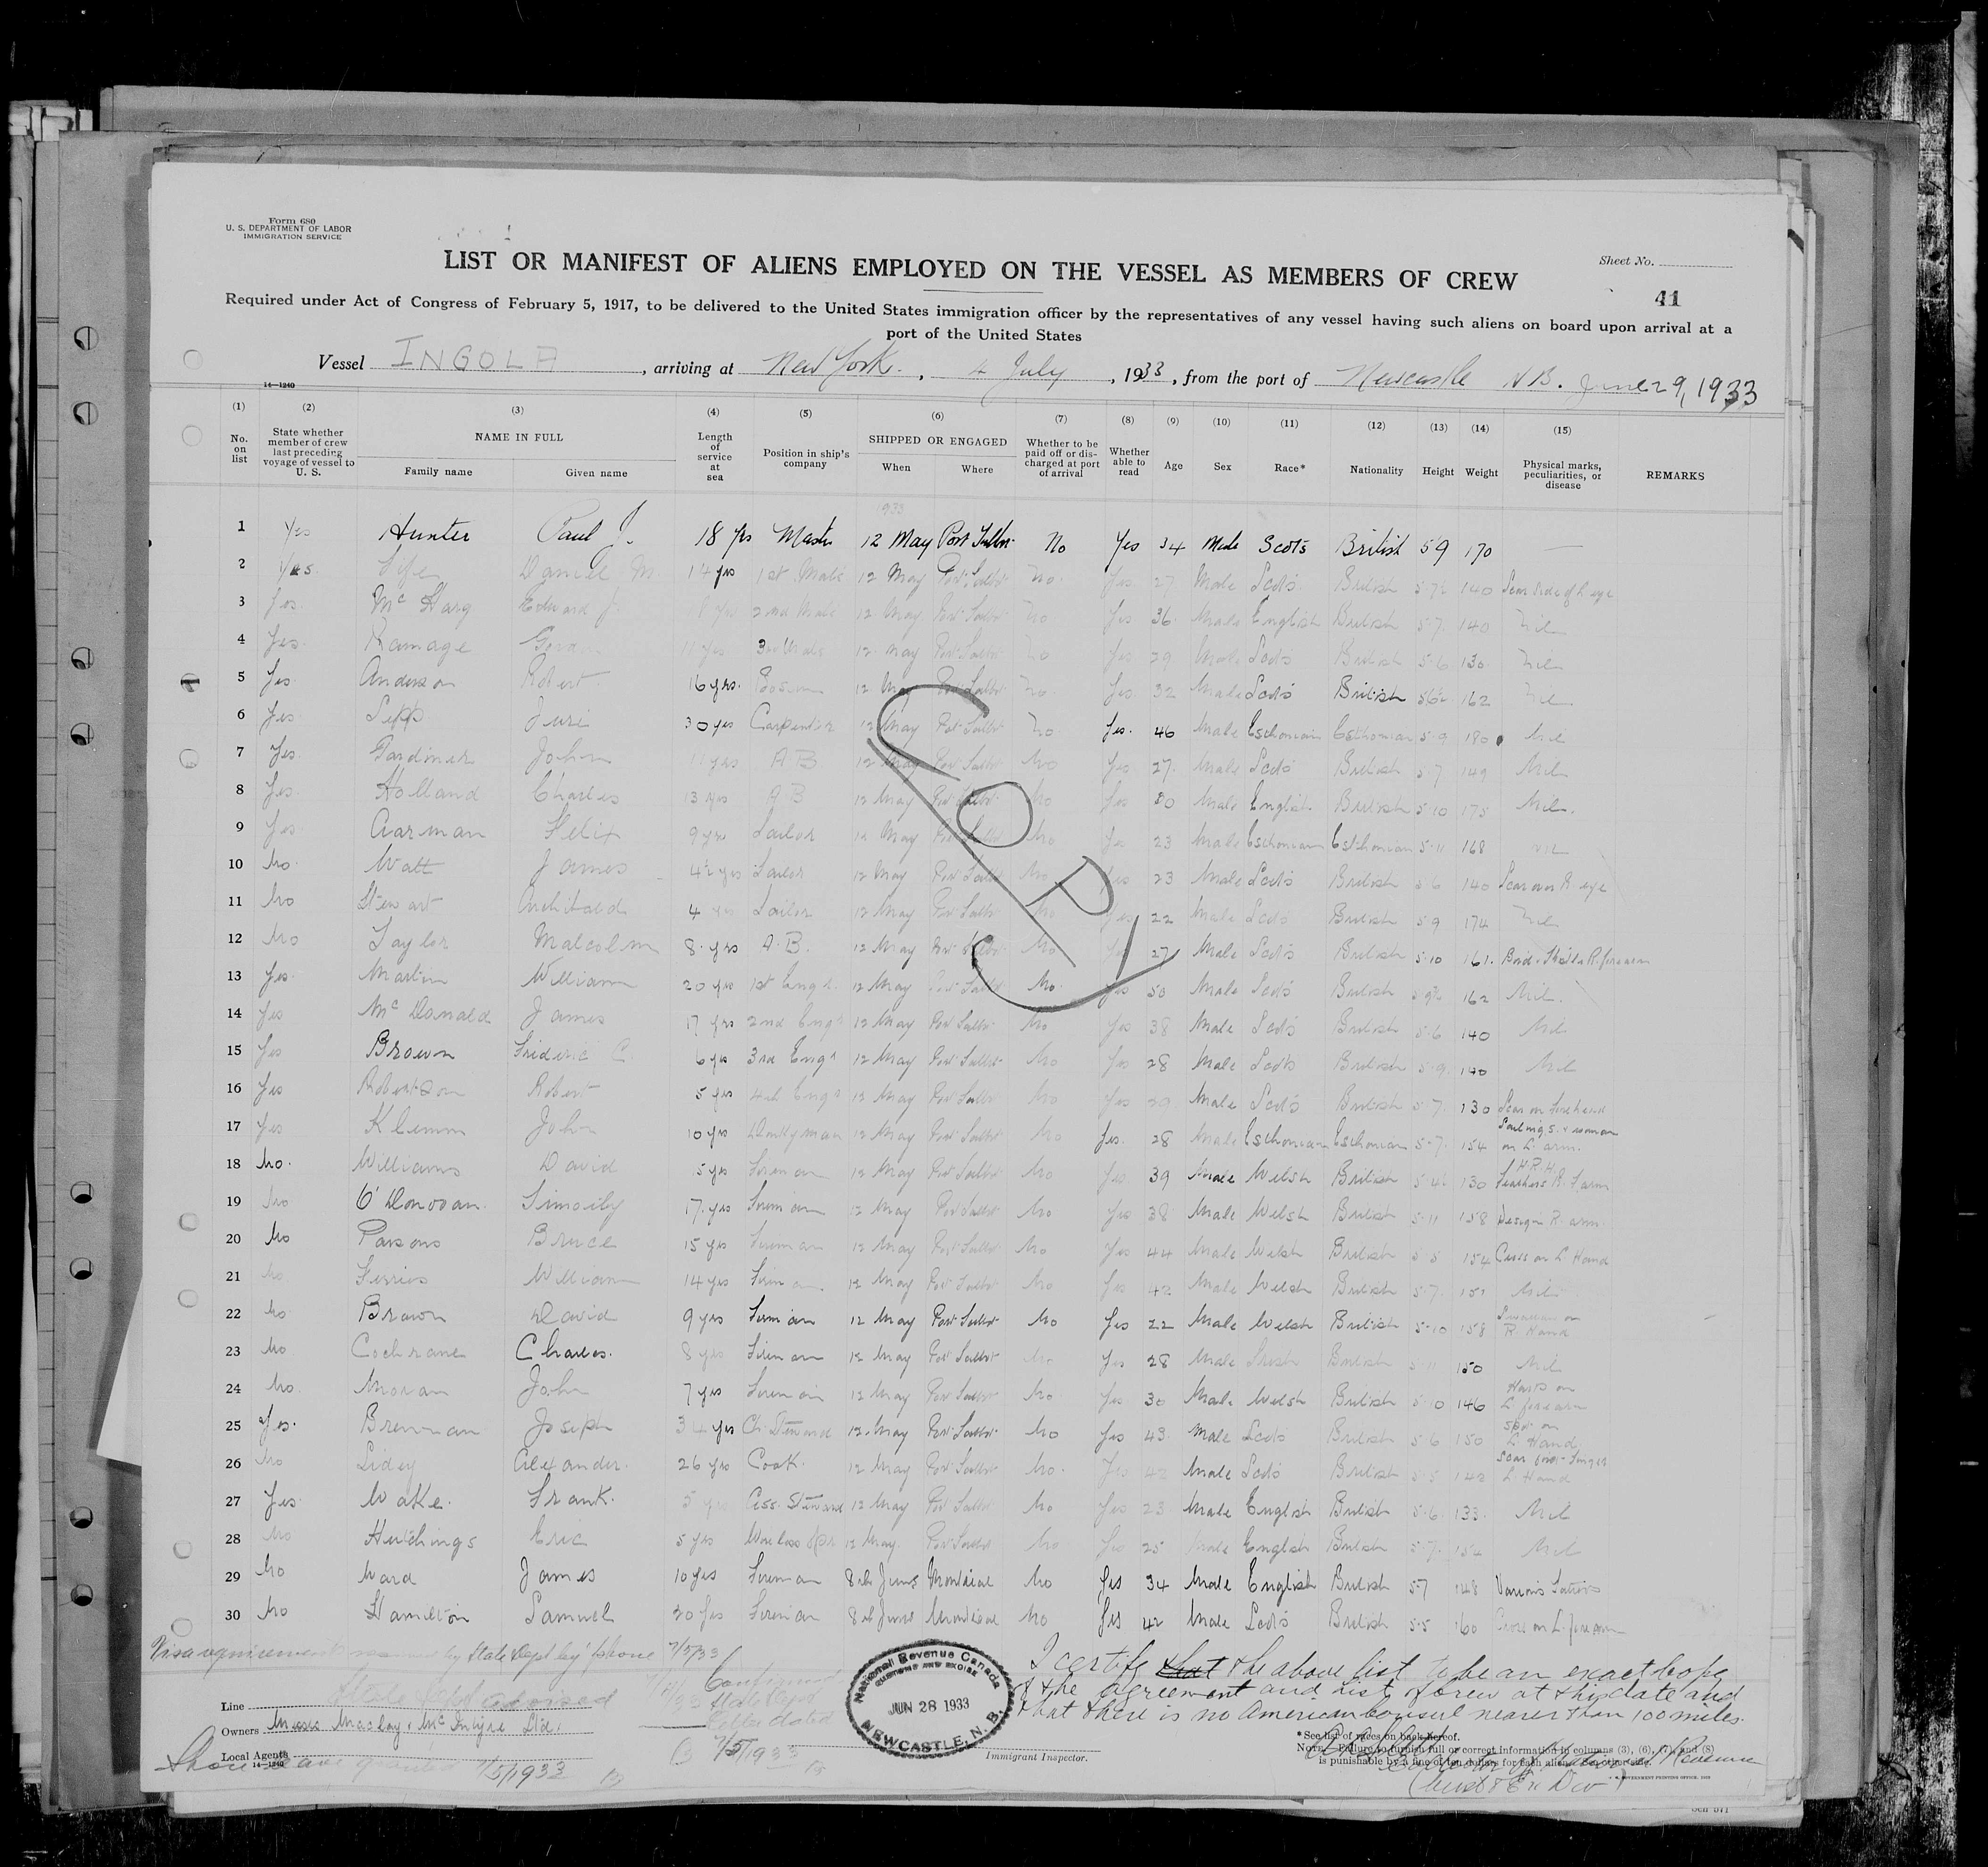 Form 680
U. S. DEPARTMENT OF LABOR
IMMIGRATION SERVICE
LIST OR MANIFEST OF ALIENS EMPLOYED ON THE VESSEL AS MEMBERS OF CREW
Sheet No.
41
Required under Act of Congress of February 5, 1917, to be delivered to the United States immigration officer by the representatives of any vessel having such aliens on board upon arrival at a
port of the United States
Vessel INGOLA, arriving at New York., 4 July, 1933, from the port of Newcastle N.B. June 29, 1933
14—1240
(1) (2) (3) (4) (5) (6) (7) (8) (9) (10) (11) (12) (13) (14) (15)
No. on list State whether member of crew last preceding voyage of vessel to U. S. NAME IN FULL Family name Given name Length of service at sea Position in ship's company SHIPPED OR ENGAGED When Where Whether to be paid off or discharged at port of arrival Whether able to read Age Sex Race* Nationality Height Weight Physical marks, peculiarities, or disease REMARKS
1933
1 Yes Hunter Paul J. 18 yrs Master 12 May Port Talbot No Yes 34 Male Scots British 5 9 170 —
2 Yes Daniel M. 14 yrs 1st Mate 12 May Port Talbot No Yes 27 Male Scots British 5 7½ 140 Scar side of L eye
3 Yes Mc Harg Edward J. yrs 2nd Mate 12 May Port Talbot No Yes 36 Male English British 5 7 140 Nil
4 Yes Ramage 11 yrs 3rd Mate 12 May Port Talbot No Yes 29 Male Scots British 5 6 130 Nil
5 Yes Anderson Robert 16 yrs. Bosun 12 May Port Talbot No Yes 32 Male Scots British 5 6½ 162 Nil
6 Yes Sepp Juri 30 yrs Carpenter 12 May Port Talbot No Yes. 46 Male Esthonian Esthonian 5 9 180 Nil
7 Yes Gardiner John 11 yrs A B 12 May Port Talbot No Yes 27 Male Scots British 5 7 149 Nil
8 Yes Holland Charles 13 yrs A B 12 May Port Talbot No Yes 30 Male English British 5 10 175 Nil.
9 Yes Aarman Felix 9 yrs Sailor 12 May Port Talbot No Yes 23 Male Esthonian Esthonian 5 11 168 Nil
10 No Watt James 4½ yrs Sailor 12 May Port Talbot No Yes 23 Male Scots British 5 6 140 Scar over R eye
11 No Stewart Archibald 4 yrs Sailor 12 May Port Talbot No Yes 22 Male Scots British 5 9 174 Nil
12 No Taylor Malcolm 8 yrs A.B. 12 May Port Talbot No Yes 27 Male Scots British 5 10 161 R. forearm
13 Yes Martin William 20 yrs 1st Engr. 12 May Port Talbot No Yes 50 Male Scots British 5 9½ 162 Nil.
14 Yes Mc Donald James 17 yrs 2nd Engr 12 May Port Talbot No Yes 38 Male Scots British 5 6 140 Nil
15 Yes Brown Frederic C. 6 yrs 3rd Engr 12 May Port Talbot No Yes 28 Male Scots British 5 9 140 Nil
16 Yes Robertson Robert 5 yrs 4th Engr 12 May Port Talbot No Yes 29 Male Scots British 5 7 130 Scar on forehead
17 Yes Klemm John 10 yrs Donkyman 12 May Port Talbot No Yes. 28 Male Esthonian Esthonian 5 7 154 Sailing S. & woman on L. arm.
18 No. Williams David 15 yrs Fireman 12 May Port Talbot No Yes 39 Male Welsh British 5 4½ 130 H.R.H. Feathers R. F arm
19 No O'Donovan Timothy 17 yrs Fireman 12 May Port Talbot No Yes 38 Male Welsh British 5 11 158 Design R. arm
20 No Parsons Bruce 15 yrs Fireman 12 May Port Talbot No Yes 44 Male Welsh British 5 5 154 Cross on L Hand
21 No Ferries William 14 yrs Fireman. 12 May Port Talbot No Yes 42 Male Welsh British 5 7 151 Nil
22 No Brown David 9 yrs Fireman 12 May Port Talbot No Yes 22 Male Welsh British 5 10 158 on R. Hand
23 No Cochrane Charles. 8 yrs Fireman 12 May Port Talbot No Yes 28 Male Irish British 5 11 150 Nil
24 No. Moran John 7 yrs Fireman 12 May Port Talbot No Yes 30 Male Welsh British 5 10 146 Harts on L forearm
25 Yes. Brennan Joseph 34 yrs Ch. Steward 12 May Port Talbot No Yes 43 Male Scots British 5 6 150 Spot on L Hand
26 No Lidey Alexander. 26 yrs Cook 12 May Port Talbot No. Yes 42 Male Scots British 5 5 142 Scar finger L Hand
27 Yes Wake. Frank. 5 yrs Ass. Steward 12 May Port Talbot No Yes 23 Male English British 5 6 133. Nil
28 No Hutchings Eric 5 yrs Wireless Opr 12 May Port Talbot No Yes 25 Male English British 5 7 154 Nil
29 No Ward James 10 yrs Fireman 8th June Montreal No Yes 34 Male English British 5 7 148 Various Tattoos
30 No Hamilton Samuel 20 yrs Fireman 8th June Montreal No Yes 42 Male Scots British 5 5 160 Cross on L. forearm
COPY
Visa requirement by State Dept by phone 7/5/33
State Dept advised
Confirmed State Dept letter dated 7/5/1933
Line
Owners Messrs Maclay & Mc Intyre Ltd.
Local Agents
14—1240
Shore leave granted 7/5/1933
National Revenue Canada
CUSTOMS AND EXCISE
JUN 28 1933
NEWCASTLE, N. B.
Immigrant Inspector.
I certify that the above list to be an exact copy
of the agreement and list of crew at this date and
that there is no American Consul nearer than 100 miles.
*See list of races on back hereof.
NOTE.—Failure to furnish full or correct information in columns (3), (6), (7) and (8)
is punishable by a fine of ten dollars for each alien.
GOVERNMENT PRINTING OFFICE